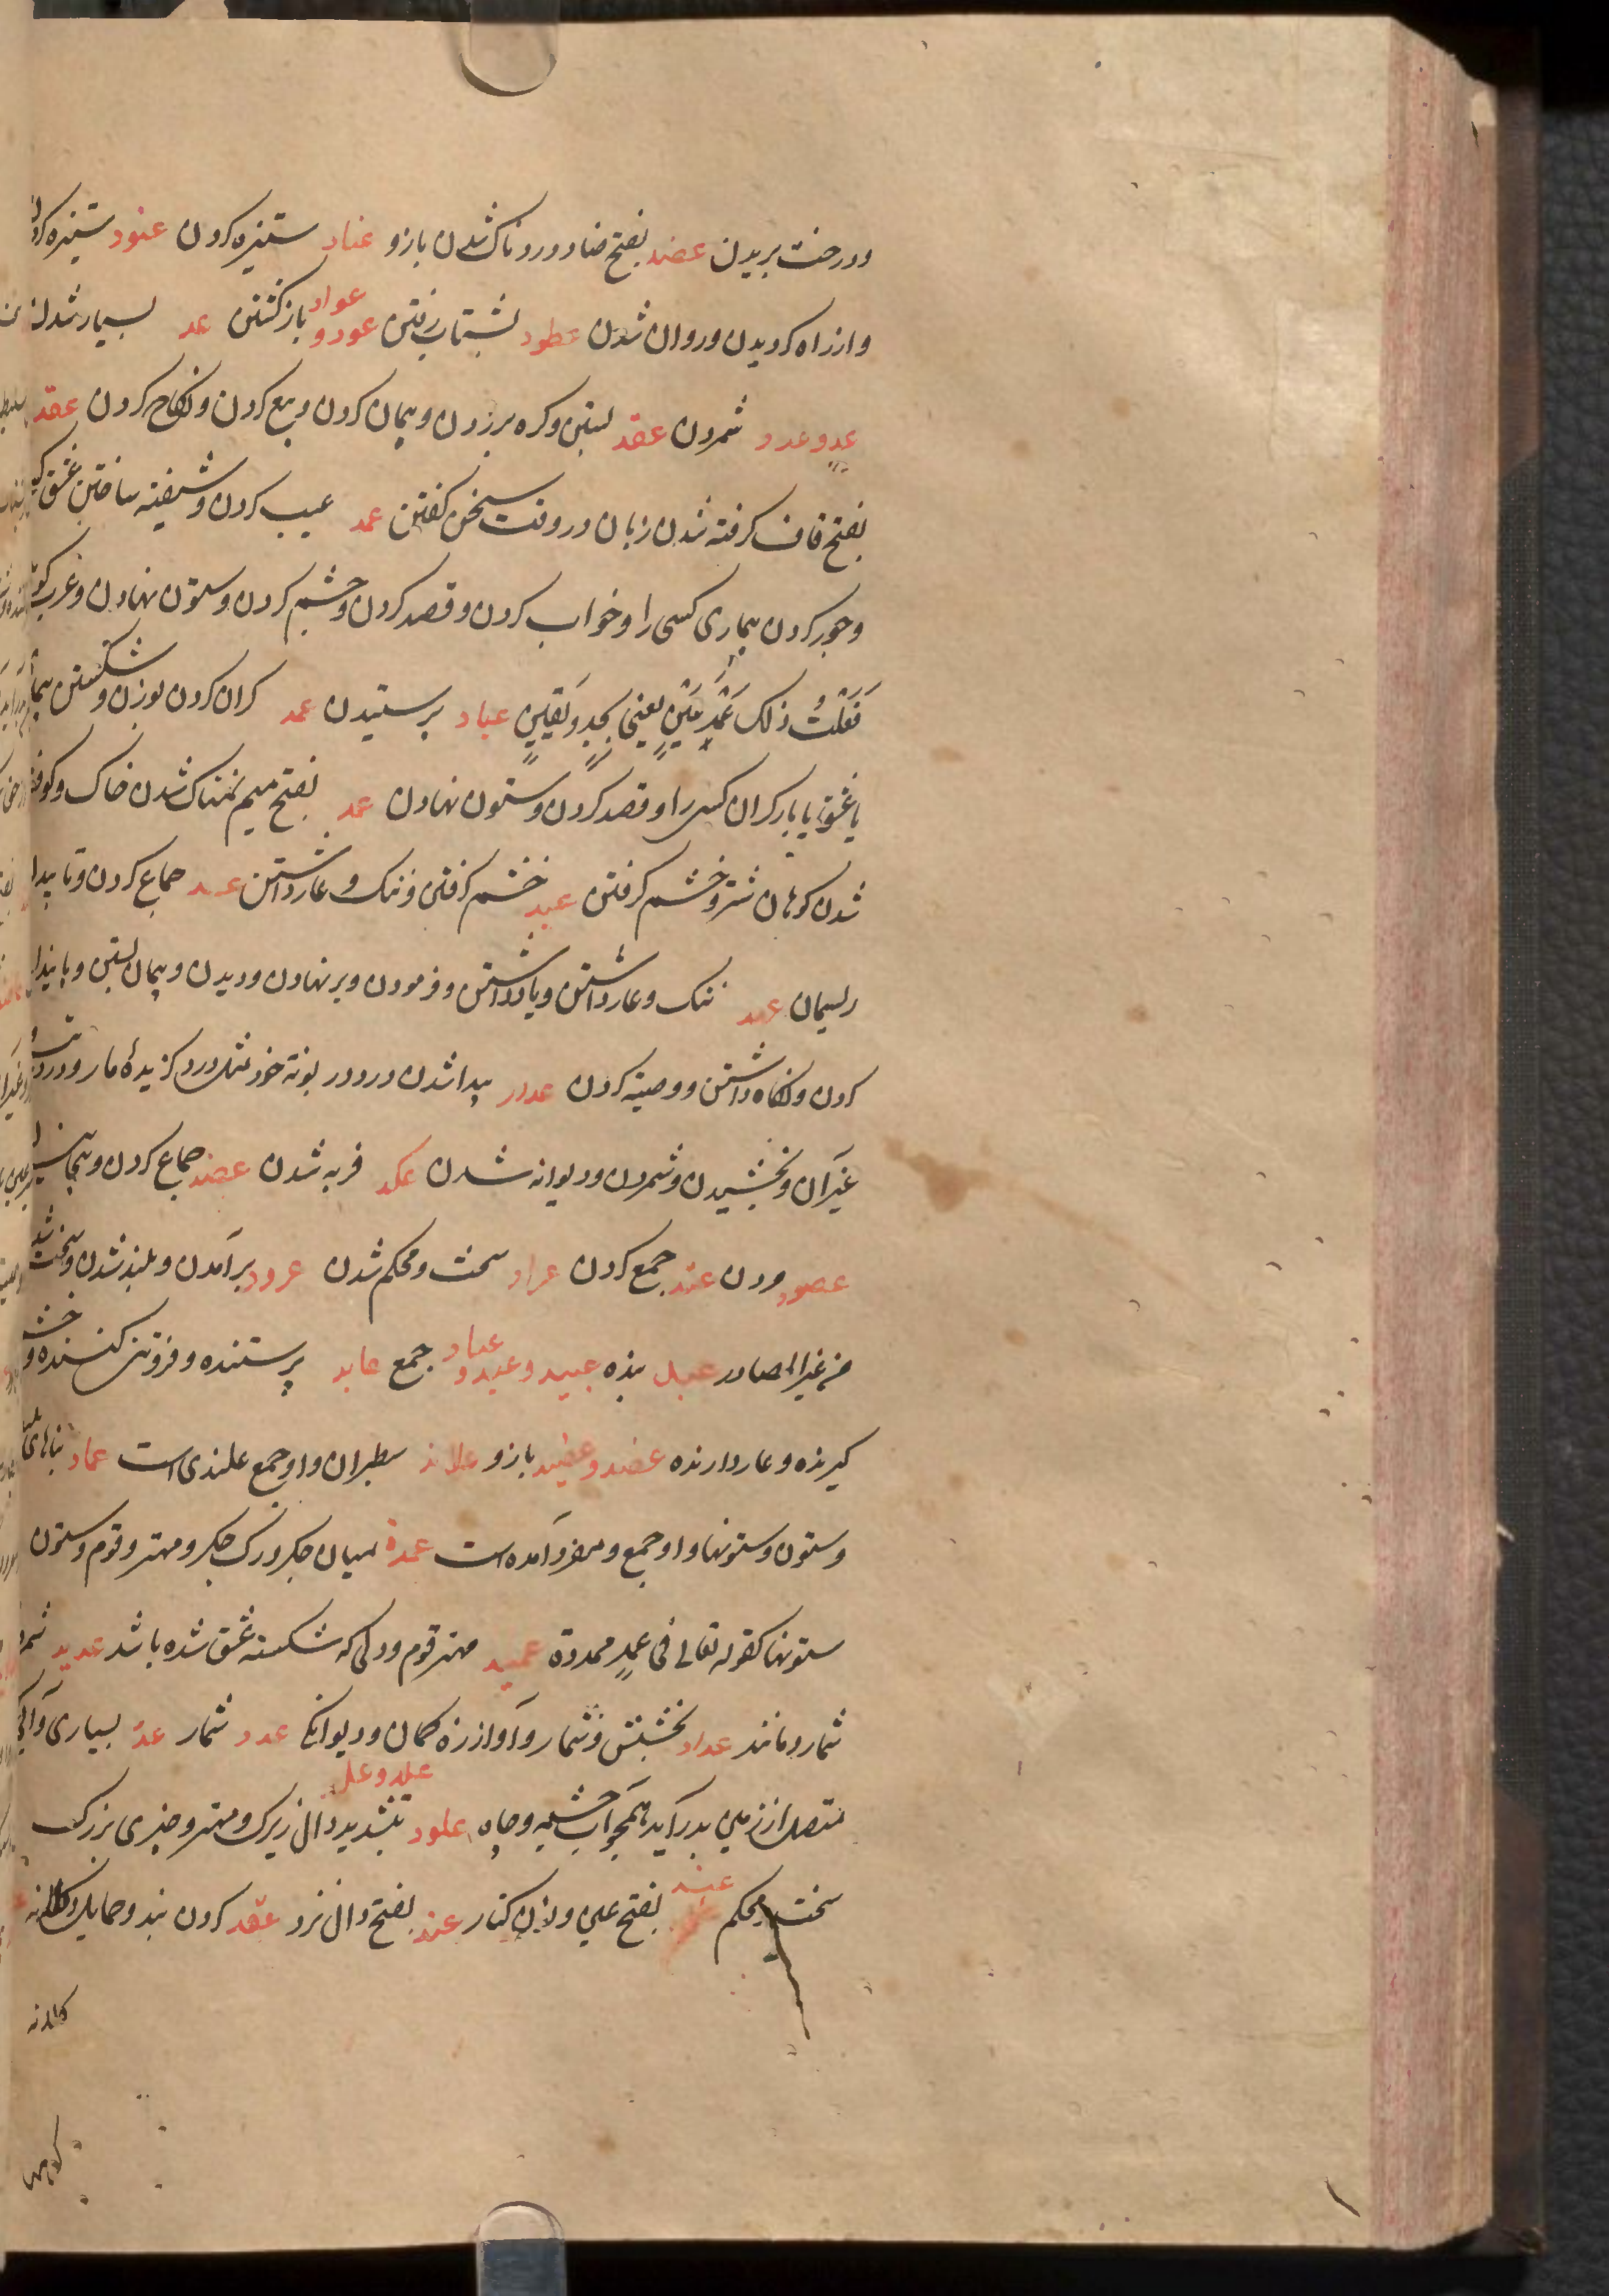 ودرخت بریدن عضد بفتح ضاد دردناک شدن بازو عناد ستیزه کردن عنود ستیزه کردن
وازراه کردیدن وروان شدن عطود بشتاب رفتن عود و عواد بازکشتن عد بسیار شدن
عد وعدد شمردن عقد بستن وکره برزدن وپیمان کردن وبیع کردن ونکاح کردن عقد
بفتح قاف کرفته شدن زبان در وقت سخن کفتن عمد عیب کردن وشیفته ساختن عشق
وجور کردن بیماری کسی را وخواب کردن وقصد کردن وخشم کردن وستون نهادن وعرب
فَعَلْتُ ذلک عَمْدِ عَیْنٍ یعنی بجدٍ ویقینٍ عباد پرستیدن عمد کران کردن بوزن وشکستن
یا عشق یا بار کران کسی را وقصد کردن وستون نهادن عمد بفتح میم نمناک شدن خاک وکوفته
شدن کوهان شتر وخشم کرفتن عبد خشم کرفتن وننک وعار داشتن عسد جماع کردن وتاب دادن
ریسمان عهد ننک وعار داشتن ویاد داشتن وفرمودن وبر نهادن ودیدن وپیمان بستن
کردن ونکاه داشتن ووصیت کردن عدد پیدا شدن درد در نوبة خود مثل درد کزیدهٔ مار ودرد
غیرآن وبخشیدن وشمردن ودیوانه شدن عکد فربه شدن عصد جماع کردن وپیچانیدن
عصود مردن عند جمع کردن عراد سخت ومحکم شدن عرود برآمدن وبلند شدن وسخت شد
من غیر المصادر عبد بنده عبید وعبد و عباد جمع عابد پرستنده وفروتنی کننده وخشم
کیرنده وعار دارنده عضد وعضید بازو علاند سطبران واو جمع علندی است عماد بناهای بلند
وستون وستونها واو جمع ومفرد آمده است عمدة میان جکر ورک جکر ومهتر وقوم وستون
ستونها کقوله تعالی فی عمدٍ ممددة عمید مهتر قوم ودلی که شکسته عشق شده باشد عدید
شمار ومانند عداد بخشش وشمار وآواز زه کمان ودیوانکی عدد شمار عدّ بسیاری وآبی
متصل از زمین بدر آید همچو آب چشمه وچاه علود علد وعلد بتشدید دال زیرک ومهتر وچیزی بزرک
سخت ومحکم عند بفتح عین ونون کنار عند بفتح دال نزد عقد کردن بند وحمایل وکلانه
کلانه